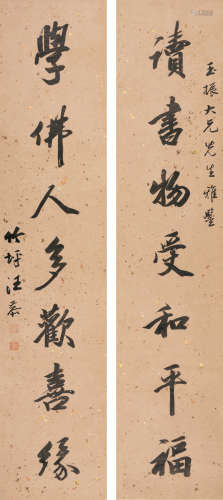 玉振大兄先生雅鑒
讀書物受和平福
學佛人多歡喜緣
竹坪汪恭